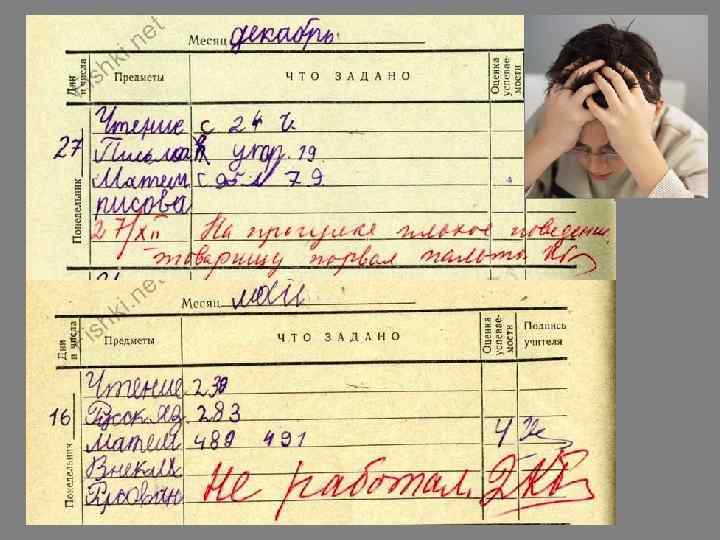 Месяц декабрь
Дни и числа Предметы ЧТО ЗАДАНО Оценка успеваемости
Понедельник 27
Чтение с 24
Письмо упр. 19
Матем с 79
рисова
27/XII На прогулке плохое поведение.
товарищу порвал пальто
ishki.net
Месяц май
Дни и числа Предметы ЧТО ЗАДАНО Оценка успеваемости Подпись учителя
Понедельник 16
Чтение 239
Русск яз. 283
Матем 489 491 4
Внекл
Не работал. 2
ishki.net